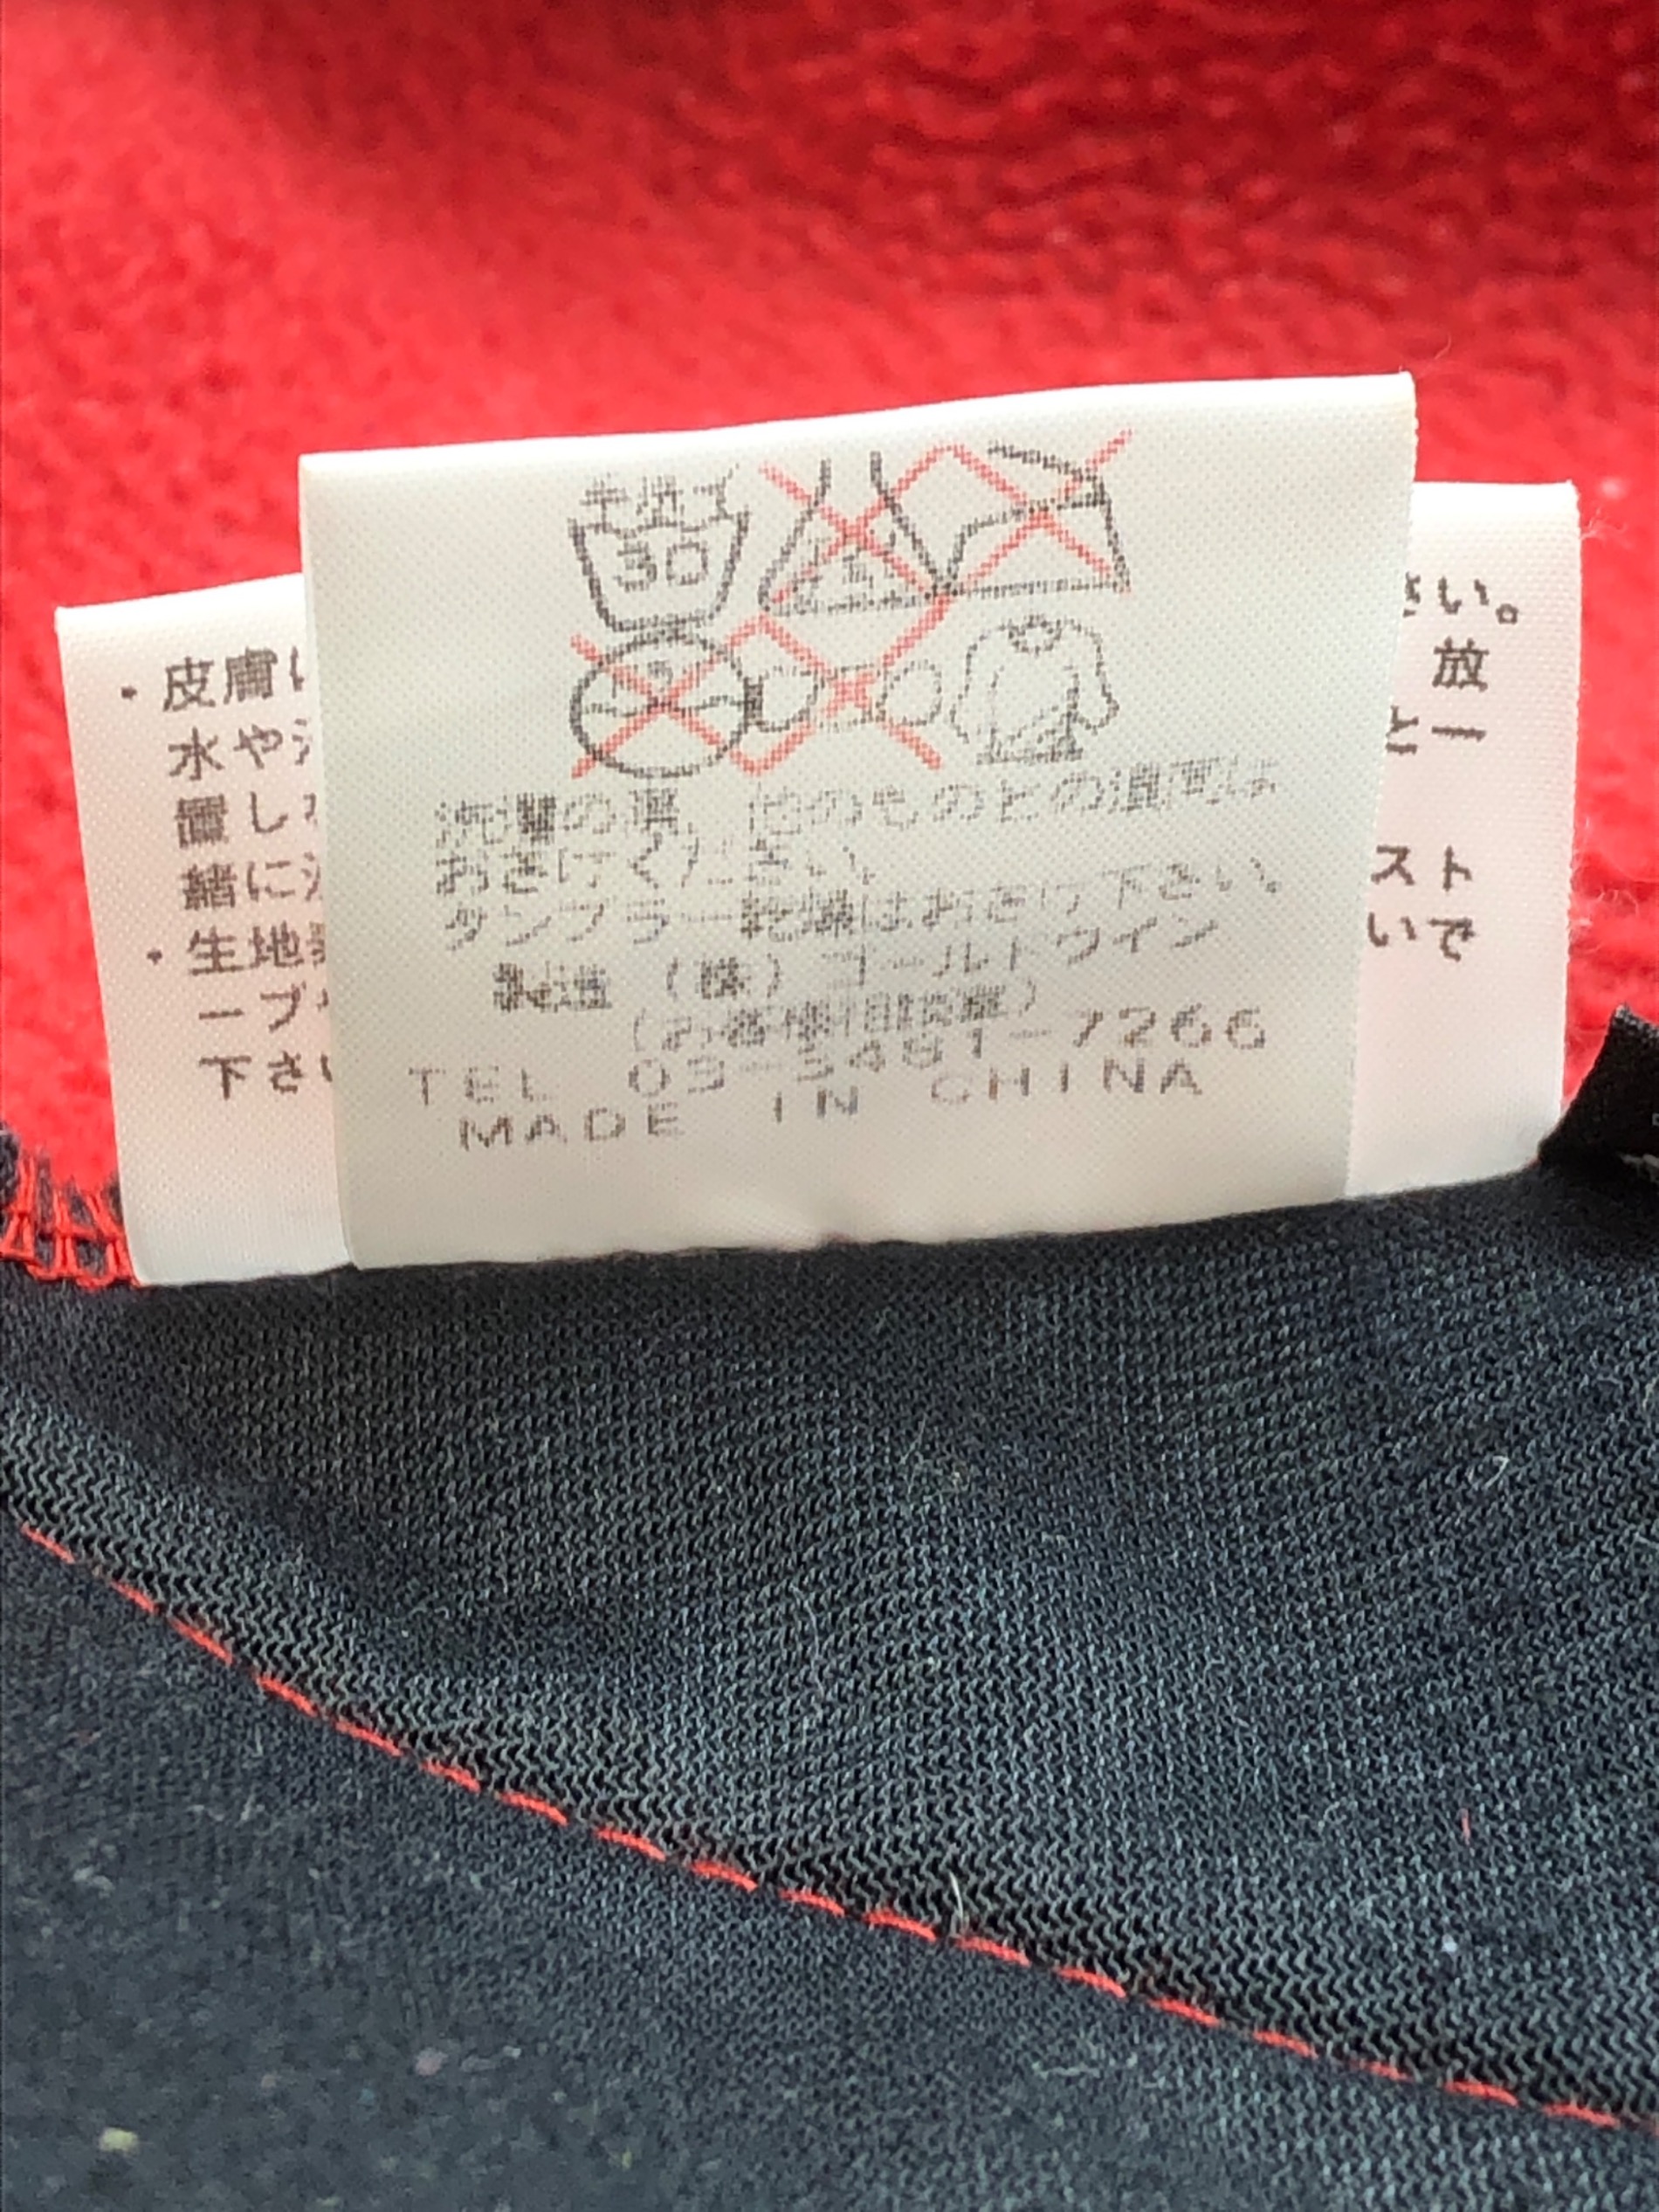 手洗イ
30
洗濯の際、他のものとの混同は
おさけください。
タンブラー乾燥はおさけ下さい。
製造 (株) ゴールドウイン
(お客様相談室)
TEL 03-3481-7266
MADE IN CHINA
・皮膚
水や
置し
緒に
・生地
ーブ
下さ
さい。
放
と一
スト
いで